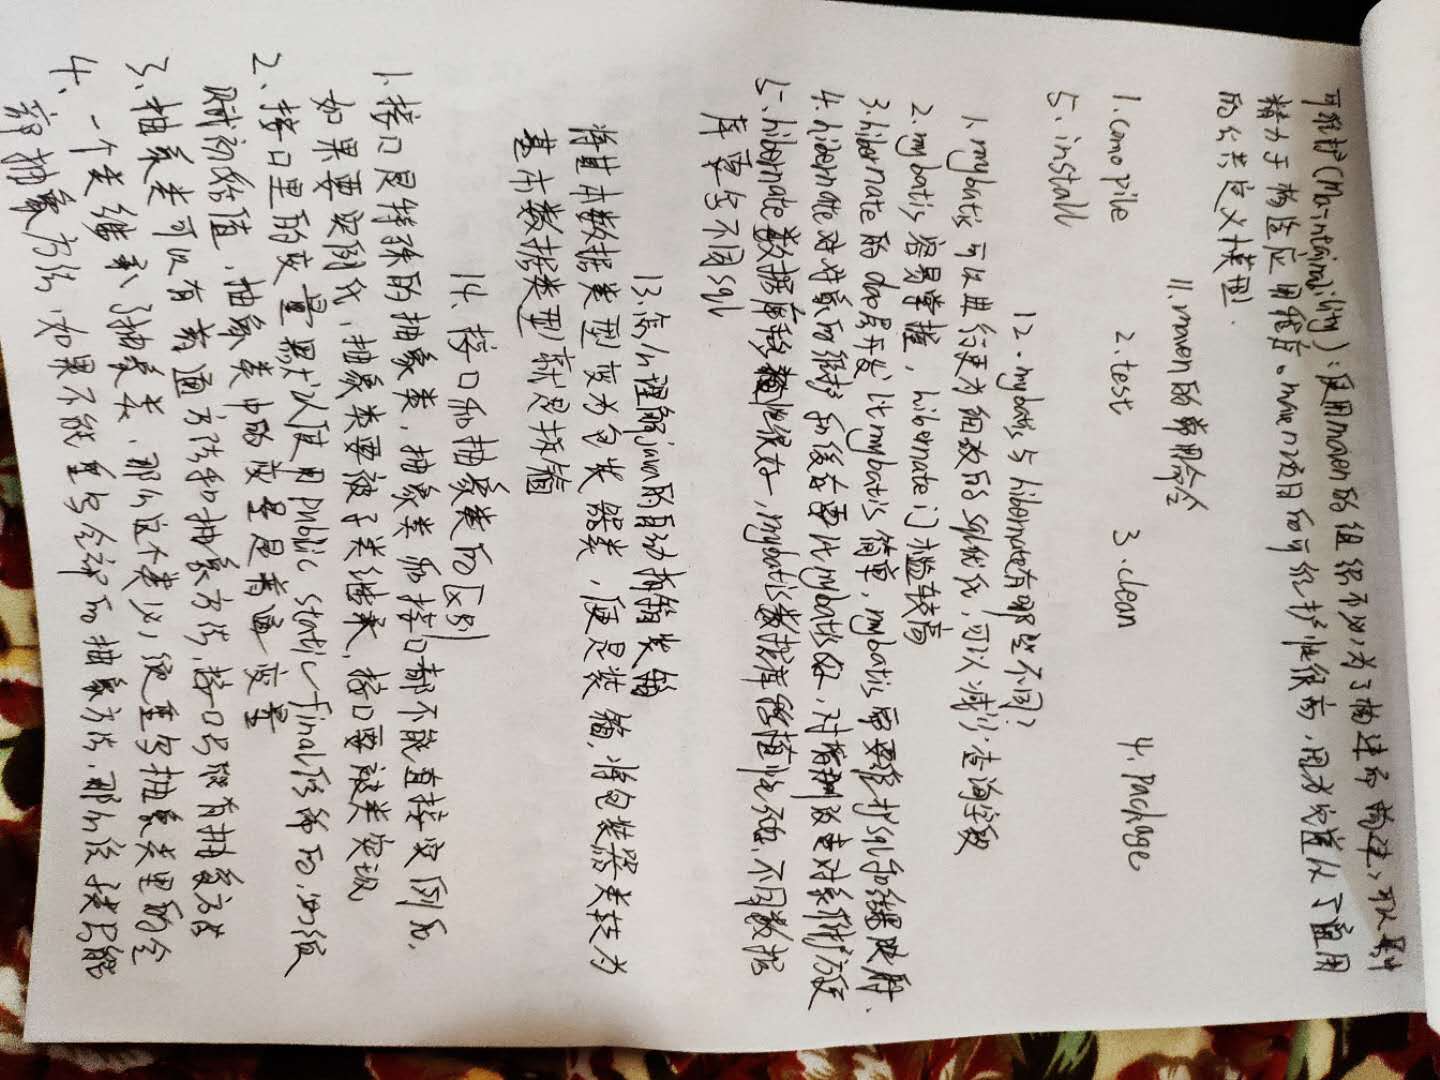 可维护(Maintainability):使用maven的组织不必为了构建而构建,可以集中
精力于构造应用程序。maven项目的可维护性很高,因为它遵从了通用
的公共定义模型.
11.maven的常用命令
1.compile 2.test 3.clean 4.Package
5.install
12.mybatis与hibernate有哪些不同?
1.mybatis可以进行更为细致的sql优化,可以减少查询字数
2.mybatis容易掌握,hibernate门槛较高
3.hibernate的dao层开发比mybatis简单,mybatis需要维护sql和结果映射.
4.hibernate对对象的维护和缓存要比mybatis好,对增删改查对象维护方便
5.hibernate数据库移植性很好,mybatis数据库移植性弱,不同数据
库要写不同sql
13.怎么理解java的自动拆箱装箱
将基本数据类型变为包装器类,便是装箱,将包装器类转为
基本数据类型就是拆箱
14.接口和抽象类的区别
1.接口是特殊的抽象类,抽象类和接口都不能直接实例化,
如果要实例化,抽象类要被子类继承,接口要被类实现
2、接口里的变量默认使用public static final修饰的,必须
赋初始值,抽象类中的变量是普通变量
3、抽象类可以有普通方法和抽象方法,接口只能有抽象方法
4、一个类继承了抽象类,那么这个类必须重写抽象类里的全
部抽象方法,如果不能重写全部的抽象方法,那么该类只能